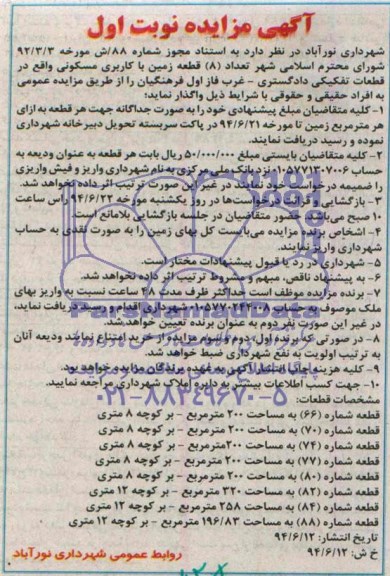 آگهی مزایده نوبت اول
شهرداری نورآباد در نظر دارد به استناد مجوز شماره ۸۸/ش مورخه ۹۲/۳/۳
شورای محترم اسلامی شهر تعداد (۸) قطعه زمین با کاربری مسکونی واقع در
قطعات تفکیکی دادگستری - غرب فاز اول فرهنگیان را از طریق مزایده عمومی
به افراد حقیقی و حقوقی با شرایط ذیل واگذار نماید؛
۱- کلیه متقاضیان مبلغ پیشنهادی خود را به صورت جداگانه جهت هر قطعه به ازای
هر مترمربع زمین تا مورخه ۹۴/۶/۲۱ در پاکت سربسته تحویل دبیرخانه شهرداری
نموده و رسید دریافت نمایند.
۲- کلیه متقاضیان بایستی مبلغ ۵۰/۰۰۰/۰۰۰ ریال بابت هر قطعه به عنوان ودیعه به
حساب ۰۱۰۵۷۷۱۲۰۷۰۰۶ نزد بانک ملی مرکزی به نام شهرداری واریز و فیش واریزی
را ضمیمه درخواست خود نمایند در غیر این صورت ترتیب اثر داده نخواهد شد.
۳- بازگشایی و قرائت درخواست‌ها در روز یکشنبه مورخه ۹۴/۶/۲۲ رأس ساعت
۱۰ صبح می‌باشد حضور متقاضیان در جلسه بازگشایی بلامانع است.
۴- اشخاص برنده مزایده می‌بایست کل بهای زمین را به صورت نقدی به حساب
شهرداری واریز نمایند.
۵- شهرداری در رد یا قبول پیشنهادات مختار است.
۶- به پیشنهاد ناقص، مبهم و مشروط ترتیب اثر داده نخواهد شد.
۷- برنده مزایده موظف است حداکثر ظرف مدت ۴۸ ساعت نسبت به واریز بهای
ملک موصوف به حساب شهرداری اقدام و رسید دریافت نماید،
در غیر این صورت نفر دوم به عنوان برنده تعیین خواهد شد.
۸- در صورتی که برنده اول، دوم و سوم مزایده از خرید امتناع نمایند ودیعه آنان
به ترتیب اولویت به نفع شهرداری ضبط خواهد شد.
۹- کلیه هزینه چاپ انتشار آگهی به عهده برندگان مزایده خواهد بود.
۱۰- جهت کسب اطلاعات بیشتر به دایره املاک شهرداری مراجعه نمایید.
مشخصات قطعات:
قطعه شماره (۶۶) به مساحت ۲۰۰ مترمربع - بر کوچه ۸ متری
قطعه شماره (۷۰) به مساحت ۲۰۰ مترمربع - بر کوچه ۸ متری
قطعه شماره (۷۴) به مساحت ۲۰۰ مترمربع - بر کوچه ۸ متری
قطعه شماره (۷۷) به مساحت ۲۰۰ مترمربع - بر کوچه ۸ متری
قطعه شماره (۸۰) به مساحت ۲۰۰ مترمربع - بر کوچه ۸ متری
قطعه شماره (۸۲) به مساحت ۳۲۰ مترمربع - بر کوچه ۱۲ متری
قطعه شماره (۸۴) به مساحت ۲۵۸ مترمربع - بر کوچه ۱۲ متری
قطعه شماره (۸۸) به مساحت ۱۹۶/۸۳ مترمربع - بر کوچه ۱۲ متری
تاریخ انتشار: ۹۴/۶/۱۲
خ ش: ۹۴/۶/۱۲
روابط عمومی شهرداری نورآباد
ParsNamadData
۰۲۱-۸۸۳۴۹۶۷۰-۵